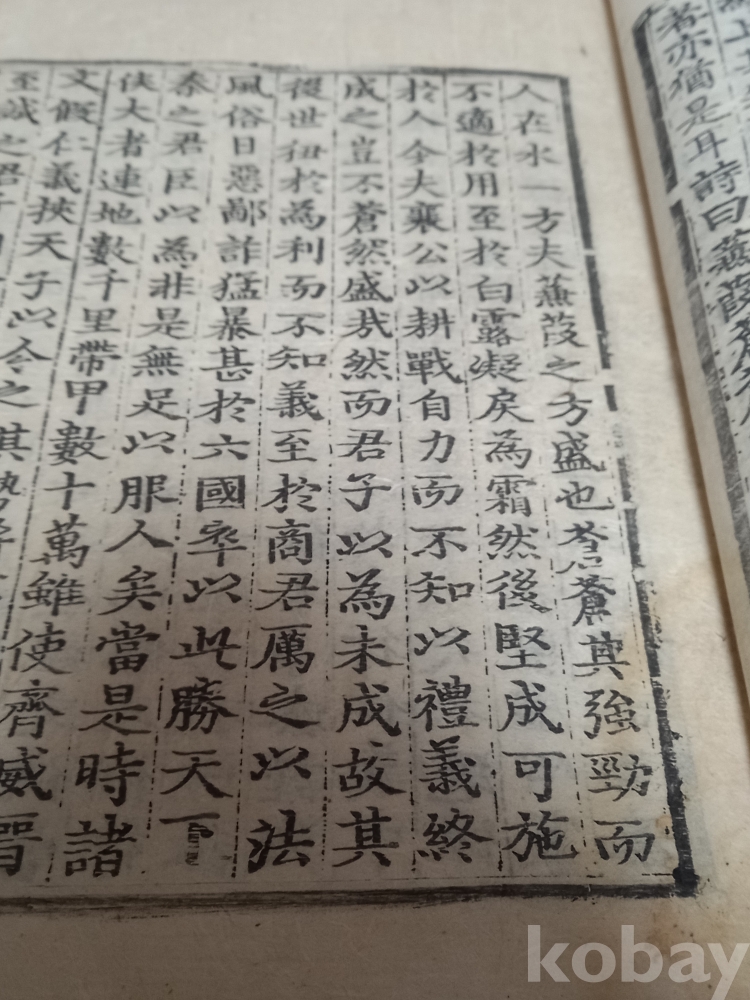 者亦猶是耳詩曰蒹葭蒼
人在水一方夫蒹葭之方盛也蒼蒼其強勁而
不適於用至於白露凝戾為霜然後堅成可施
於人今夫襄公以耕戰自力而不知以禮義終
成之豈不蒼然盛㢤然而君子以為未成故其
後世狃於為利而不知義至於商君厲之以法
風俗日惡鄙詐猛暴甚於六國卒以此勝天下
秦之君臣以為非是無足以服人矣當是時諸
侯大者連地數千里帶甲數十萬雖使齊威晉
文假仁義挾天子以令之其勢
至誠之君子
kobay